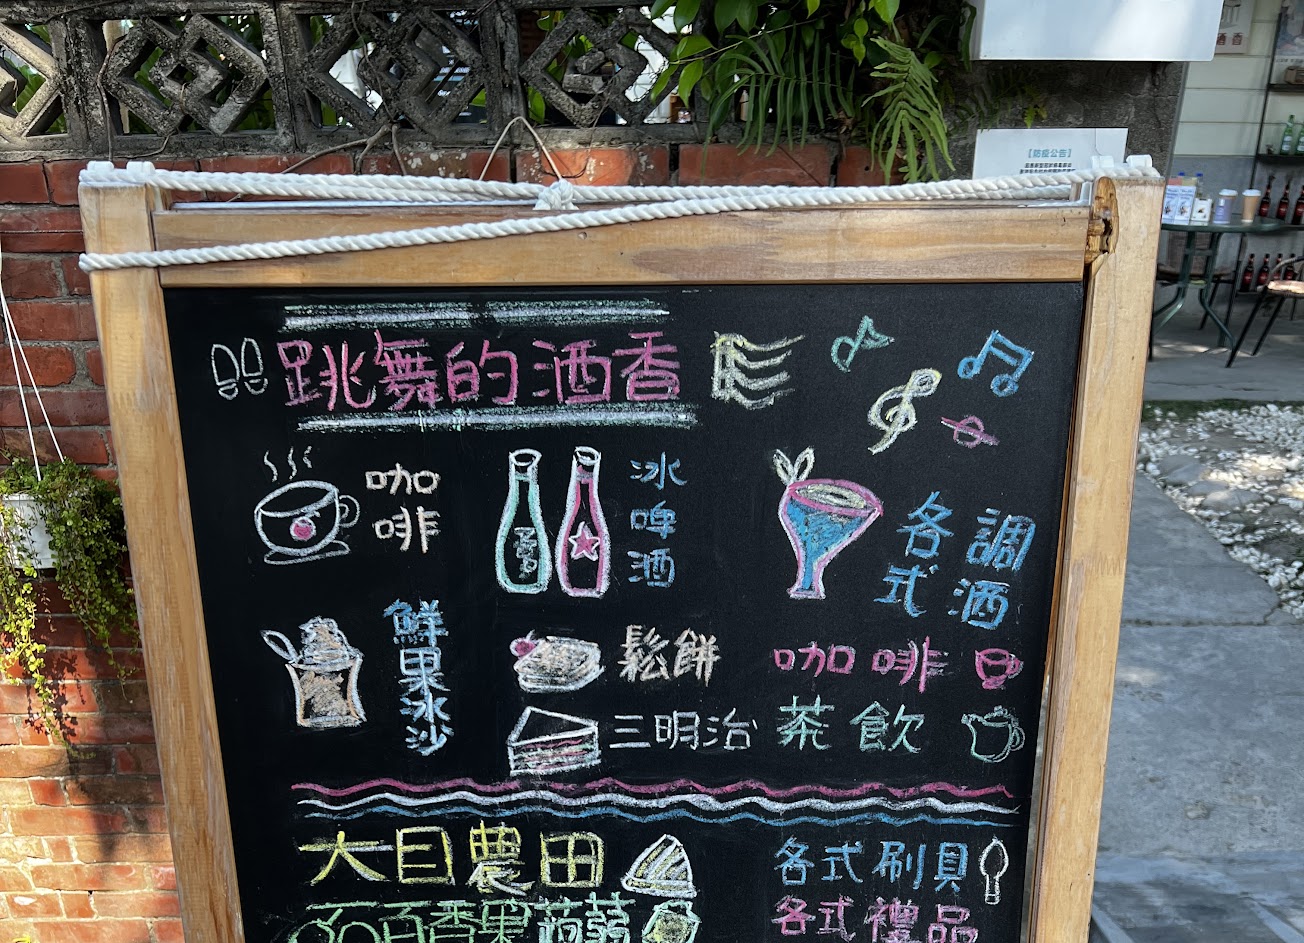 【防疫公告】
跳舞的酒香
咖啡
冰啤酒
各式調酒
鮮果冰沙
鬆餅
咖啡
三明治
茶飲
大目農田
各式刷貝
百香果蒟蒻
各式禮品
酒香